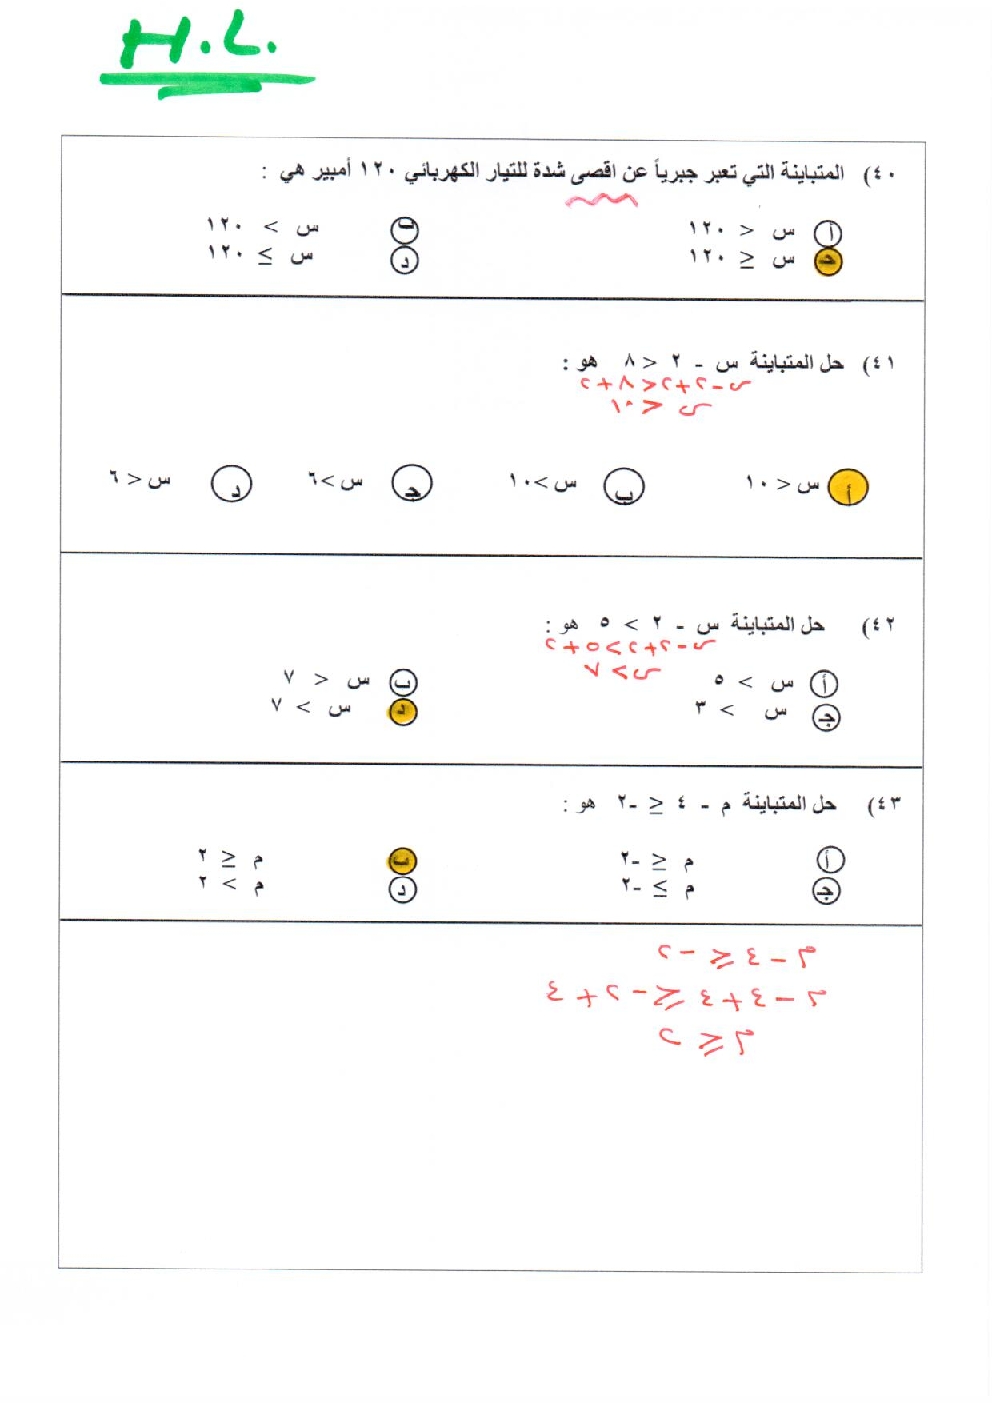 H.L.
٤٠) المتباينة التي تعبر جبرياً عن اقصى شدة للتيار الكهربائي ١٢٠ أمبير هي :
أ س < ١٢٠ ب س > ١٢٠
ج س ≤ ١٢٠ د س ≥ ١٢٠
٤١) حل المتباينة س - ٢ < ٨ هو :
س - ٢ + ٢ < ٨ + ٢
س < ١٠
أ س < ١٠ ب س > ١٠ ج س > ٦ د س < ٦
٤٢) حل المتباينة س - ٢ > ٥ هو :
س - ٢ + ٢ > ٥ + ٢
س > ٨
أ س > ٥ ب س < ٧
ج س > ٣ د س > ٧
٤٣) حل المتباينة م - ٤ ≤ -٢ هو :
أ م ≤ -٢ ب م ≤ ٢
ج م ≥ -٢ د م > ٢
م - ٤ ≤ - ٢
م - ٤ + ٤ ≤ - ٢ + ٤
م ≤ ٢